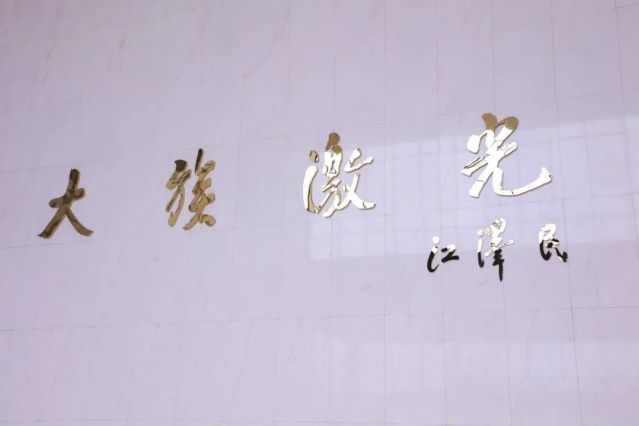 大族激光
江澤民